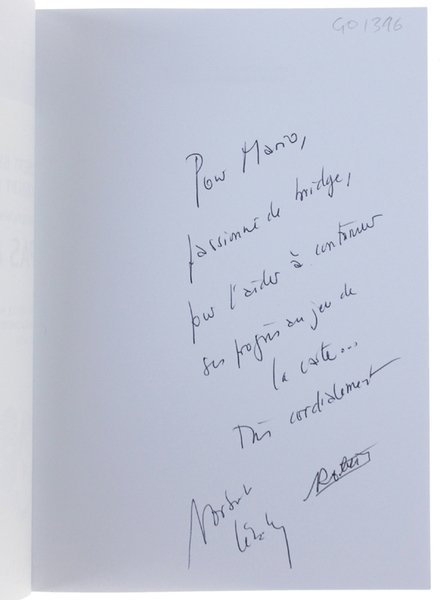 GO1396
Pour Mario,
passionné de bridge,
pour l'aider à continuer
ses progrès au jeu de
la carte...
Très cordialement
Norbert